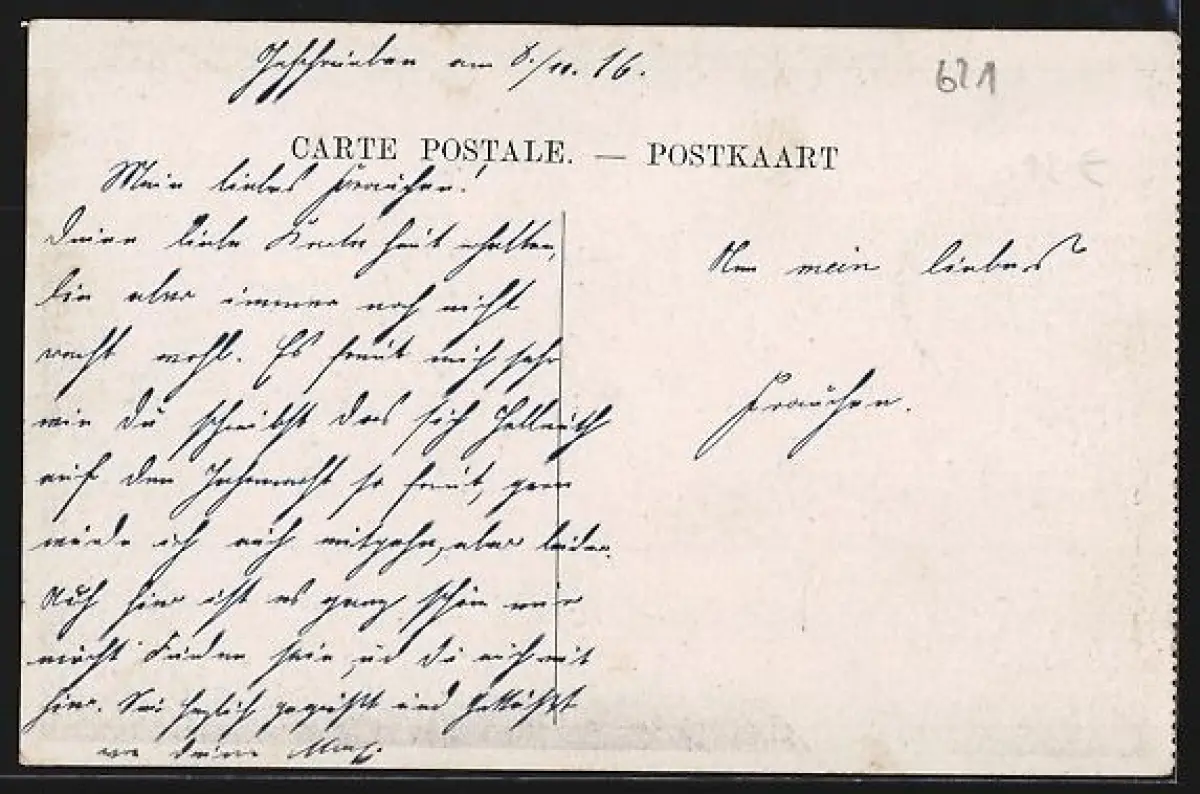 Geschrieben am 8./10. 16.
621
CARTE POSTALE. — POSTKAART
Mein liebes Frauchen!
Deine liebe Karte heut erhalten,
bin aber immer noch nicht
recht wohl. Es freut mich sehr
wie du schreibst das sich Hellmuth
auf den so freut, gern
würde ich auch mitgehn, aber leider.
Auch hier ist es ganz schön nur
möcht Frieden sein, und du auch mit
hier. Sei herzlich gegrüßt und geküßt
von deine Max
An mein liebes
Frauchen.